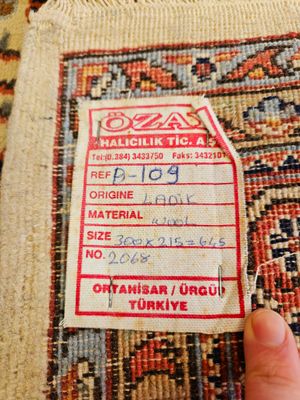 ÖZAY
HALICILIK TİC. A.Ş
Tel:(0.384) 3433750 Faks: 3432101
REF A-109
ORIGINE LADİK
MATERIAL WOOL
SIZE 300x215=645
NO. 2068
ORTAHİSAR / ÜRGÜP
TÜRKİYE